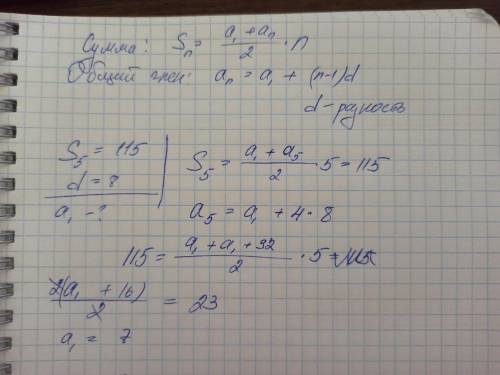 Сумма: Sₙ = (a₁ + aₙ)/2 · n
Общий член: aₙ = a₁ + (n-1)d
d - разность
S₅ = 115
d = 8
a₁ - ?
S₅ = (a₁ + a₅)/2 · 5 = 115
a₅ = a₁ + 4 · 8
115 = (a₁ + a₁ + 32)/2 · 5
2(a₁ + 16)/2 = 23
a₁ = 7